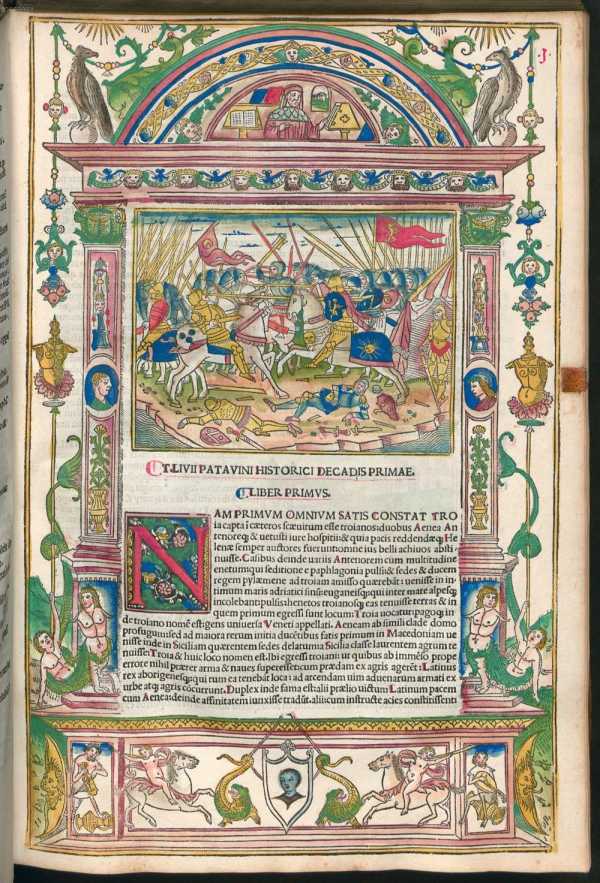 T. LIVII PATAVINI HISTORICI DECADIS PRIMAE.
LIBER PRIMVS.
NAM PRIMVM OMNIVM SATIS CONSTAT TRO
ia capta i cæteros sæuitum esse troianos: duobus Aenea An
tenoreq; & uetusti iure hospitii: & quia pacis reddendæq; He
lenæ semper auctores fuerunt omne ius belli achiuos absti
nuisse. Casibus deinde uariis Antenorem cum multitudine
enetum qui seditione e paphlagonia pulsi: & sedes & ducem
rege pylæmene ad troiam amisso quærebāt: uenisse in in
timum maris adriatici sinū: euganeisq; qui inter mare alpesq;
incolebant pulsis: henetos troianosq; eas tenuisse terras & in
quem primum egressi sunt locum: Troia uocatur: pagoq; in
de troiano nomē est: gens uniuersa Veneti appellati. Aeneam ab simili clade domo
profugum: sed ad maiora rerum initia ducētibus fatis primum in Macedoniam ue
nisse inde in Siciliam quærentem sedes delatum: a Sicilia classe laurentem agrum te
nuisse: Troia & huic loco nomen est. Ibi egressi troiani: ut quibus ab imméso prope
errore nihil præter arma & naues superesset: cum prædam ex agris agerēt: Latinus
rex aborigenesq; qui tum ea tenebāt loca: ad arcendam uim aduenarum armati ex
urbe atq; agris cōcurrunt. Duplex inde fama est: alii prælio uictum Latinum pacem
cum Aenea: deinde affinitatem iunxisse tradūt. alii: cum instructe acies constitissent